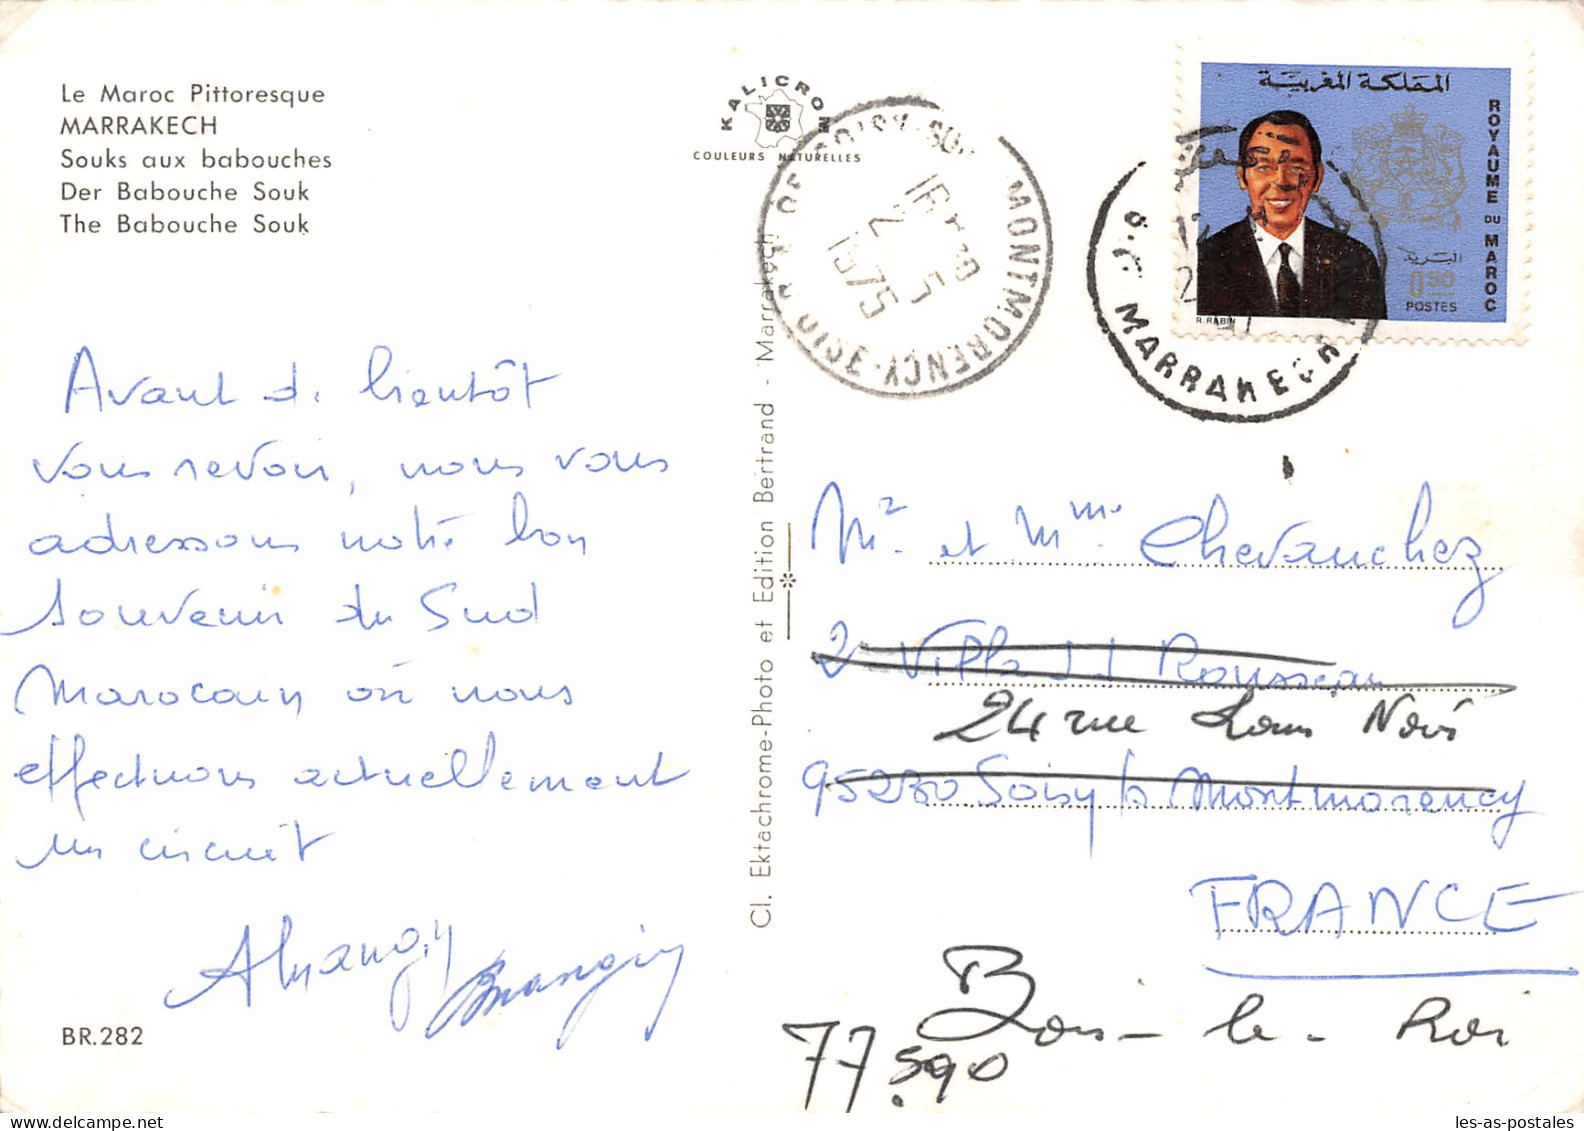 Le Maroc Pittoresque
MARRAKECH
Souks aux babouches
Der Babouche Souk
The Babouche Souk
Avant de bientôt
vous revoir, nous vous
adressons notre bon
souvenir du Sud
Marocain où nous
effectuons actuellement
un circuit
BR.282
KALICROM
COULEURS NATURELLES
Cl. Ektachrome-Photo et Edition Bertrand - Marrakech
SOISY-SOUS-MONTMORENCY
2 5
1975
المملكة المغربية
ROYAUME DU MAROC
البريد
0.50
POSTES
R. RABIN
MARRAKECH
Mr. et Mme. Chevanchez
2 Villa JJ Rousseau
24 rue Louis
95230 Soisy s/s Montmorency
FRANCE
77.590 Bois-le-Roi
les-as-postales